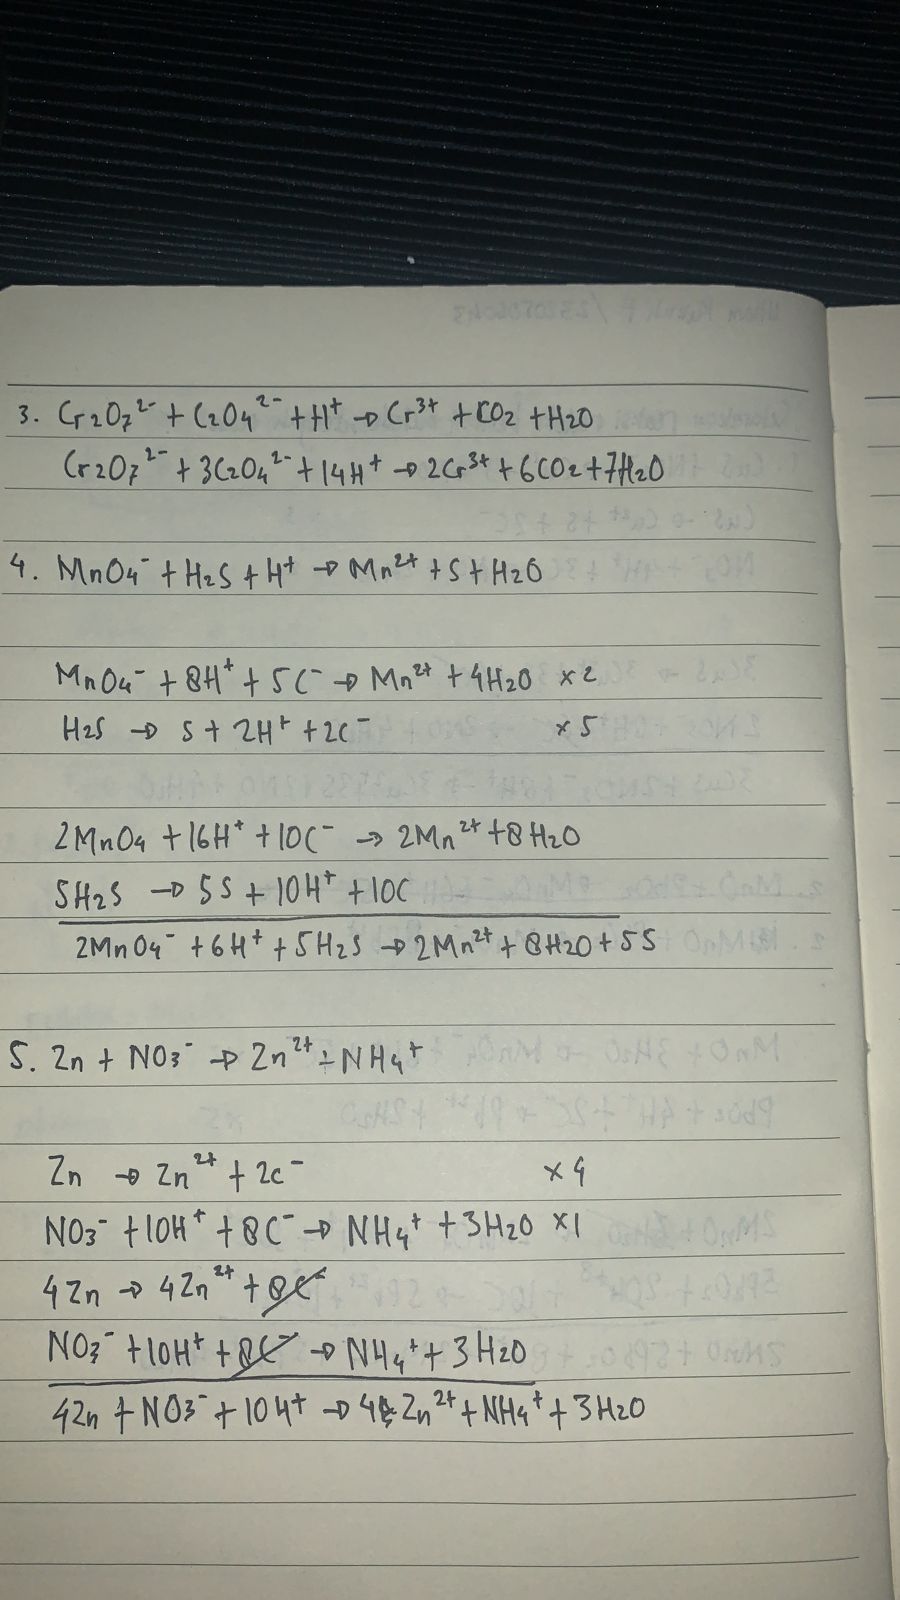 3. Cr2O7²⁻ + C2O4²⁻ + H⁺ → Cr³⁺ + CO2 + H2O
Cr2O7²⁻ + 3C2O4²⁻ + 14H⁺ → 2Cr³⁺ + 6CO2 + 7H2O
4. MnO4⁻ + H2S + H⁺ → Mn²⁺ + S + H2O
MnO4⁻ + 8H⁺ + 5e⁻ → Mn²⁺ + 4H2O ×2
H2S → S + 2H⁺ + 2e⁻ ×5
2MnO4 + 16H⁺ + 10e⁻ → 2Mn²⁺ + 8H2O
5H2S → 5S + 10H⁺ + 10e
2MnO4⁻ + 6H⁺ + 5H2S → 2Mn²⁺ + 8H2O + 5S
5. Zn + NO3⁻ → Zn²⁺ + NH4⁺
Zn → Zn²⁺ + 2e⁻ ×4
NO3⁻ + 10H⁺ + 8e⁻ → NH4⁺ + 3H2O ×1
4Zn → 4Zn²⁺ + 8e⁻
NO3⁻ + 10H⁺ + 8e⁻ → NH4⁺ + 3H2O
4Zn + NO3⁻ + 10H⁺ → 4Zn²⁺ + NH4⁺ + 3H2O